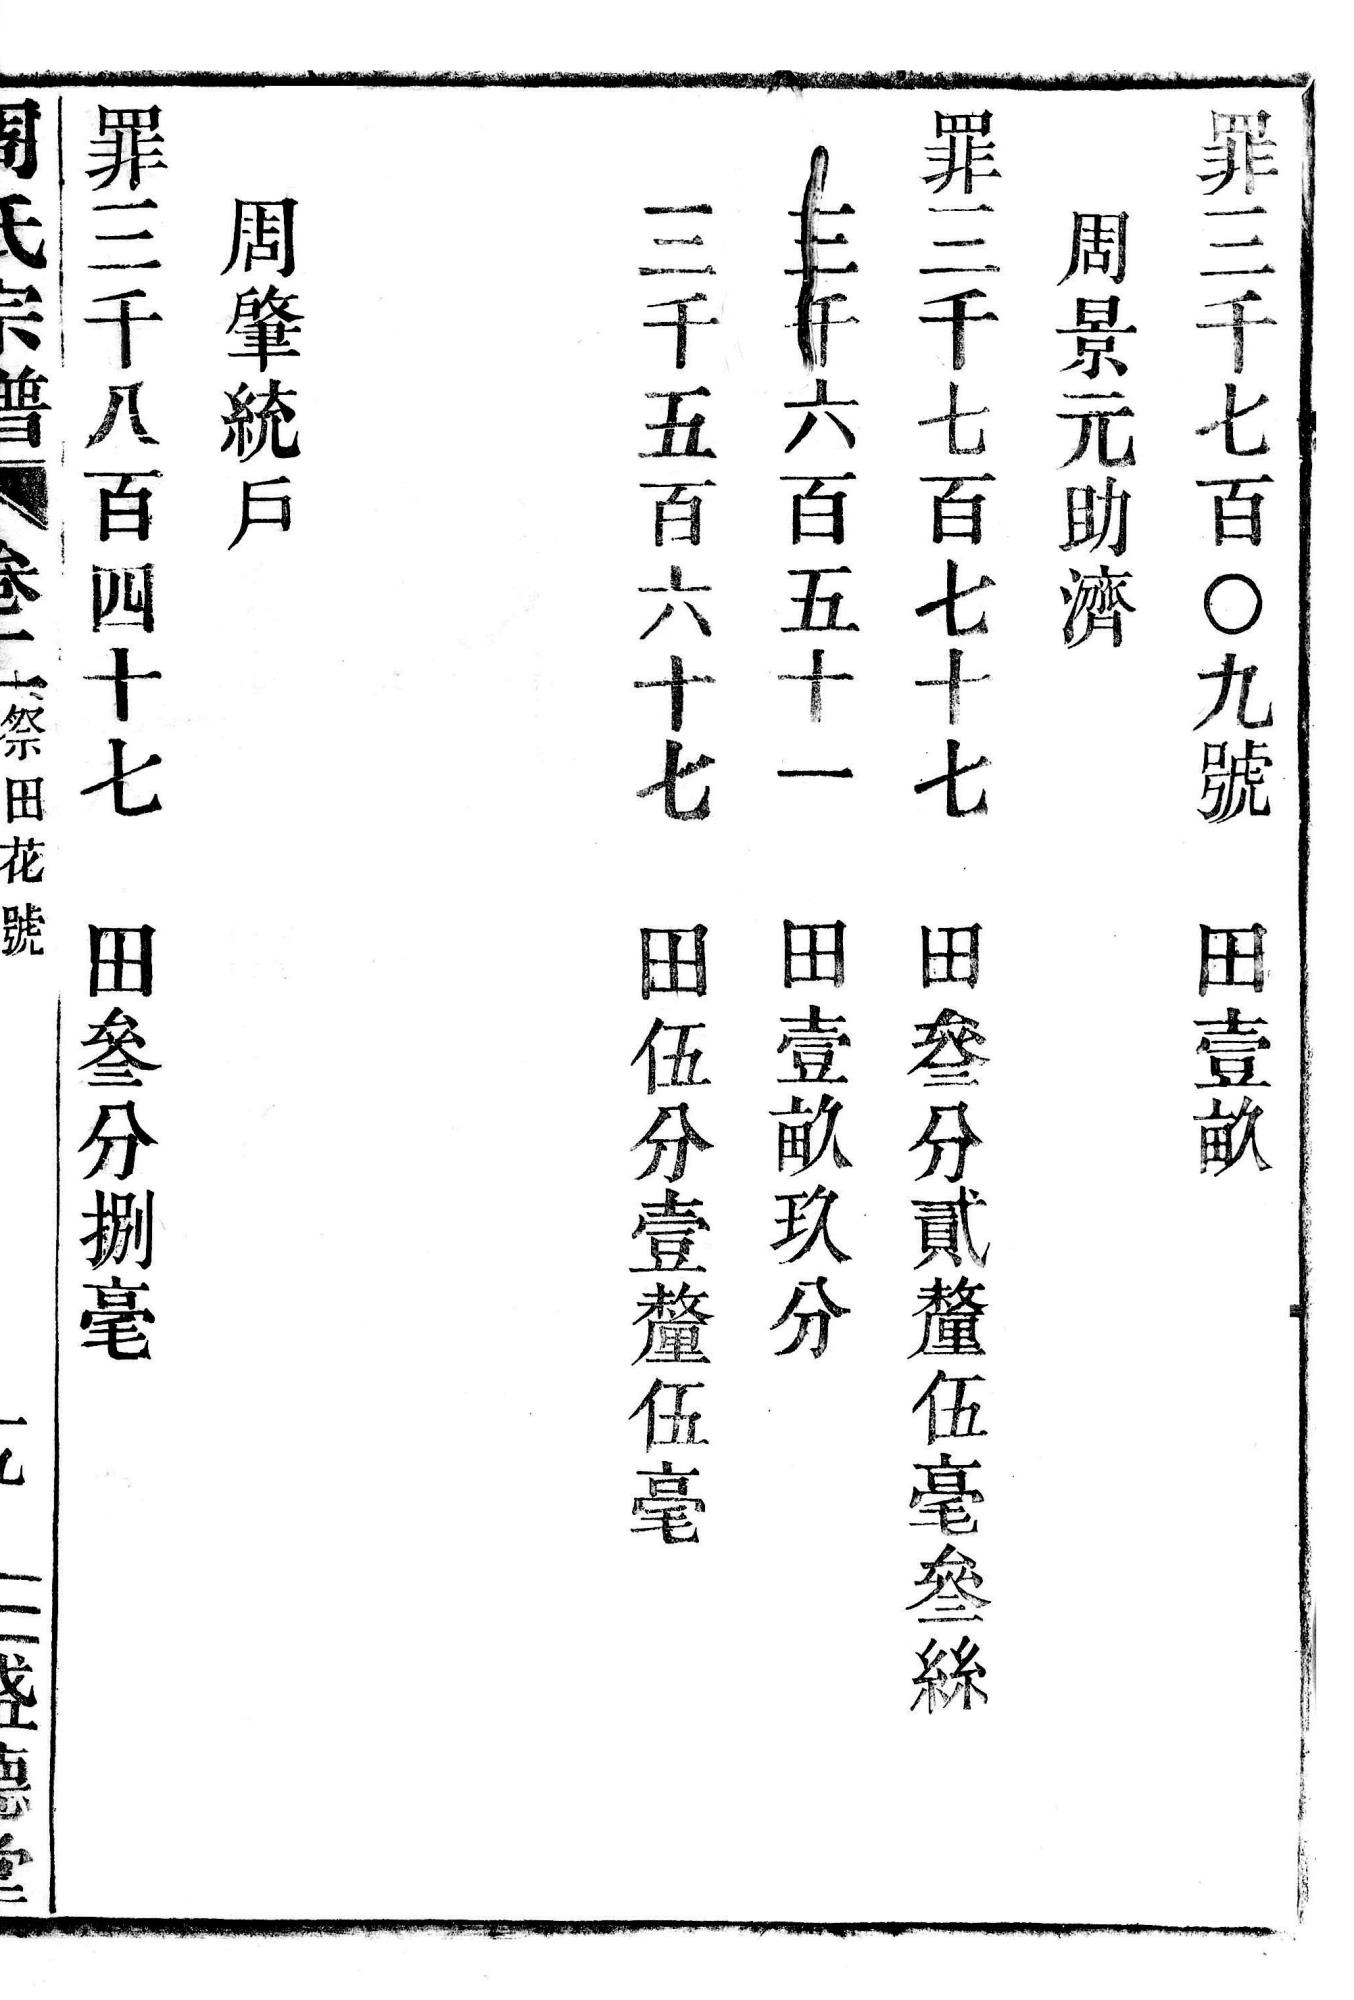 罪三千七百〇九號　田壹畝
周景元助濟
罪三千七百七十七　田叄分貳釐伍毫叄絲
三千六百五十一　田壹畝玖分
三千五百六十七　田伍分壹釐伍毫
周肇統戶
罪三千八百四十七　田叄分捌毫
周氏宗譜　卷十六祭田花號　一九　三盛德堂